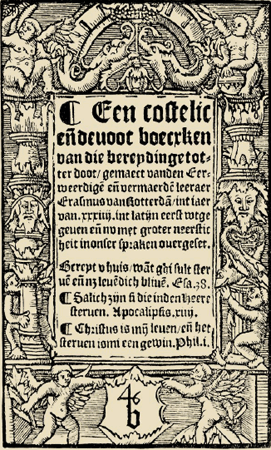 ¶ Een costelic
eñ devoot boecxken
van die bereydinge tot-
ter doot / gemaect vanden Eer-
weerdigē eñ vermaerdē leeraer
Erasmus van Rotterdā / int iaer
van .xxxiiij. int latijn eerst wtge
geven eñ nv met groter neerstic
heit in onser spraken overgeset.
Bereyt v huis / wāt ghi sult ster
uē eñ nz levēdich blivē. Esa. 38.
¶ Salich zijn si die inden heere
sterven. Apocalipsis. xiiij.
¶ Christus is mij leven / eñ het
sterven is mi een gewin. Phil. i.
4
b